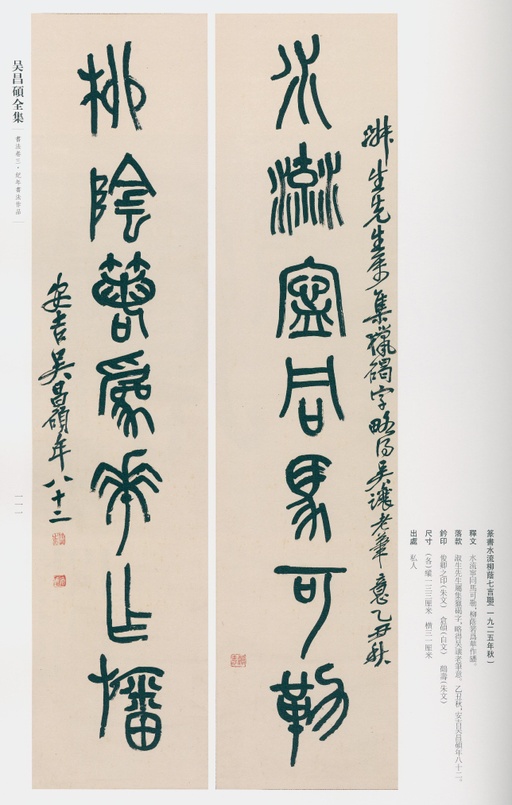 篆書水流柳蔭七言聯(一九二五年秋)
釋文 水流寧同馬可勒,柳蔭 爲華作 。
落款 淑生先生屬集獵碣字,略得吳讓老筆意。乙丑秋,安吉吳昌碩年八十二。
鈐印 俊卿之印(朱文) 倉碩(白文) 鶴壽(朱文)
尺寸 (各)縱一三三厘米 橫三一厘米
出處 私人
淑生先生屬集獵碣字略得吳讓老筆意乙丑秋
水流寧同馬可勒
柳陰 爲華乍
安吉吳昌碩年八十二
吴昌碩全集
書法卷三·紀年書法作品
一一一